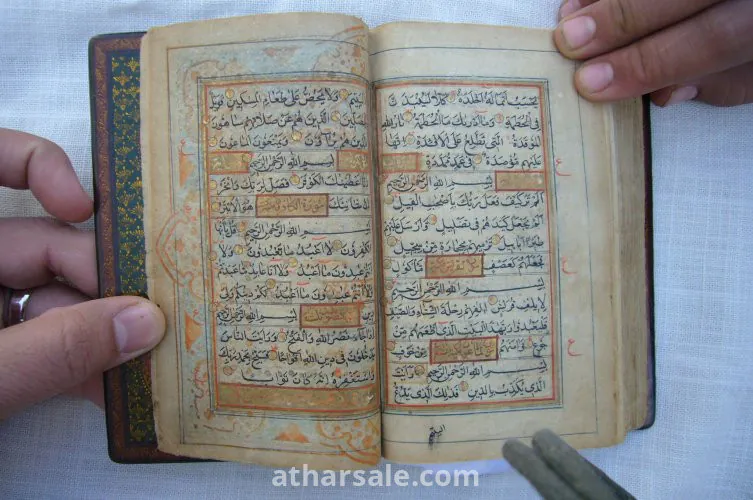 يَحْسَبُ اَنَّ مَالَهُ اَخْلَدَهُ كَلَّا لَيُنْبَذَنَّ
فِى الْحُطَمَةِ وَمَا اَدْرٰيكَ مَا الْحُطَمَةُ نَارُ اللهِ
الْمُوقَدَةُ الَّتِى تَطَّلِعُ عَلَى الْاَفْئِدَةِ اِنَّهَا
عَلَيْهِمْ مُؤْصَدَةٌ فِى عَمَدٍ مُمَدَّدَةٍ
بِسْمِ اللهِ الرَّحْمٰنِ الرَّحِيمِ
اَلَمْ تَرَ كَيْفَ فَعَلَ رَبُّكَ بِاَصْحٰبِ الْفِيلِ
اَلَمْ يَجْعَلْ كَيْدَهُمْ فِى تَضْلِيلٍ وَاَرْسَلَ عَلَيْهِمْ
طَيْرًا اَبَابِيلَ تَرْمِيهِمْ بِحِجَارَةٍ مِنْ سِجِّيلٍ
فَجَعَلَهُمْ كَعَصْفٍ مَأْكُولٍ
بِسْمِ اللهِ الرَّحْمٰنِ الرَّحِيمِ
لِاِيلٰفِ قُرَيْشٍ اٖلٰفِهِمْ رِحْلَةَ الشِّتَاءِ وَالصَّيْفِ
فَلْيَعْبُدُوا رَبَّ هٰذَا الْبَيْتِ الَّذِى اَطْعَمَهُمْ مِنْ
جُوعٍ وَاٰمَنَهُمْ مِنْ خَوْفٍ
بِسْمِ اللهِ الرَّحْمٰنِ الرَّحِيمِ
الَّذِى يُكَذِّبُ بِالدِّينِ فَذٰلِكَ الَّذِى يَدُعُّ
اليتيم
الْيَتِيمَ وَلَا يَحُضُّ عَلٰى طَعَامِ الْمِسْكِينِ فَوَيْلٌ
لِلْمُصَلِّينَ الَّذِينَ هُمْ عَنْ صَلَاتِهِمْ سَاهُونَ
الَّذِينَ هُمْ يُرَاؤُنَ وَيَمْنَعُونَ الْمَاعُونَ
بِسْمِ اللهِ الرَّحْمٰنِ الرَّحِيمِ
اِنَّا اَعْطَيْنٰكَ الْكَوْثَرَ فَصَلِّ لِرَبِّكَ وَانْحَرْ
اِنَّ شَانِئَكَ سورة الكافرون هُوَ الْاَبْتَرُ
بِسْمِ اللهِ الرَّحْمٰنِ الرَّحِيمِ قُلْ يٰاَيُّهَا
الْكٰفِرُونَ لَا اَعْبُدُ مَا تَعْبُدُونَ وَلَا
اَنْتُمْ عٰبِدُونَ مَا اَعْبُدُ وَلَا اَنَا عَابِدٌ مَا عَبَدْتُمْ
وَلَا اَنْتُمْ عٰبِدُونَ مَا اَعْبُدُ لَكُمْ دِينُكُمْ وَلِىَ
دِينِ بِسْمِ اللهِ الرَّحْمٰنِ الرَّحِيمِ
اِذَا جَاءَ نَصْرُ اللهِ وَالْفَتْحُ وَرَاَيْتَ النَّاسَ
يَدْخُلُونَ فِى دِينِ اللهِ اَفْوَاجًا فَسَبِّحْ بِحَمْدِ رَبِّكَ
وَاسْتَغْفِرْهُ اِنَّهُ كَانَ تَوَّابًا
atharsale.com